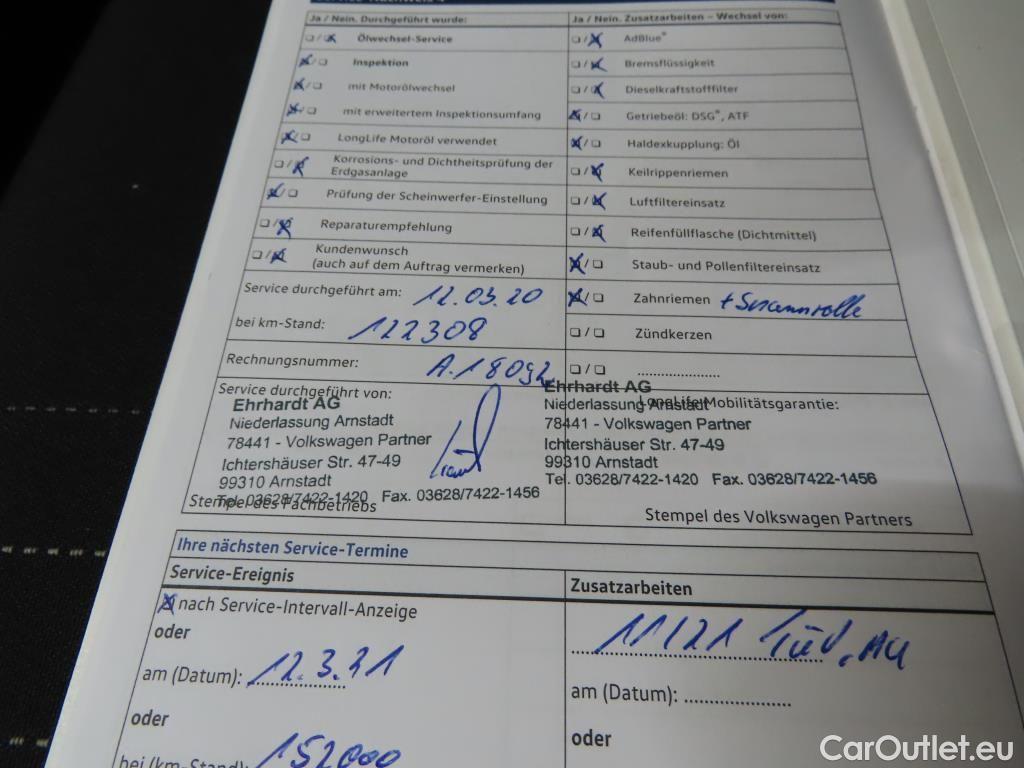 Ja / Nein. Durchgeführt wurde:
Ölwechsel-Service
Inspektion
mit Motorölwechsel
mit erweitertem Inspektionsumfang
LongLife Motoröl verwendet
Korrosions- und Dichtheitsprüfung der
Erdgasanlage
Prüfung der Scheinwerfer-Einstellung
Reparaturempfehlung
Kundenwunsch
(auch auf dem Auftrag vermerken)
Service durchgeführt am: 12.03.20
bei km-Stand: 122308
Rechnungsnummer: A.18092
Service durchgeführt von:
Ehrhardt AG
Niederlassung Arnstadt
78441 - Volkswagen Partner
Ichtershäuser Str. 47-49
99310 Arnstadt
Tel. 03628/7422-1420 Fax. 03628/7422-1456
Stempel des Fachbetriebs
Ja / Nein. Zusatzarbeiten – Wechsel von:
AdBlue®
Bremsflüssigkeit
Dieselkraftstofffilter
Getriebeöl: DSG®, ATF
Haldexkupplung: Öl
Keilrippenriemen
Luftfiltereinsatz
Reifenfüllflasche (Dichtmittel)
Staub- und Pollenfiltereinsatz
Zahnriemen + Spannrolle
Zündkerzen
LongLife Mobilitätsgarantie:
Ehrhardt AG
Niederlassung Arnstadt
78441 - Volkswagen Partner
Ichtershäuser Str. 47-49
99310 Arnstadt
Tel. 03628/7422-1420 Fax. 03628/7422-1456
Stempel des Volkswagen Partners
Ihre nächsten Service-Termine
Service-Ereignis
nach Service-Intervall-Anzeige
oder
am (Datum): 12.3.21
oder
bei (km-Stand): 152000
Zusatzarbeiten
11/21 TüV, AU
am (Datum):
oder
CarOutlet.eu